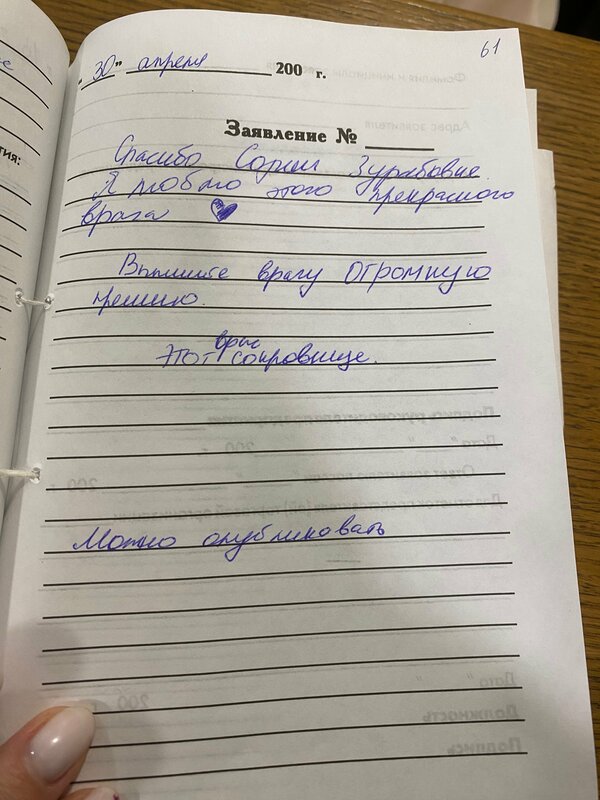 61
"30" апреля 200 г.
Заявление №
Спасибо Софии Зурабовне.
Я люблю этого прекрасного
врача
Выпишите врачу огромную
премию.
врач
Этот сокровище.
Можно опубликовать